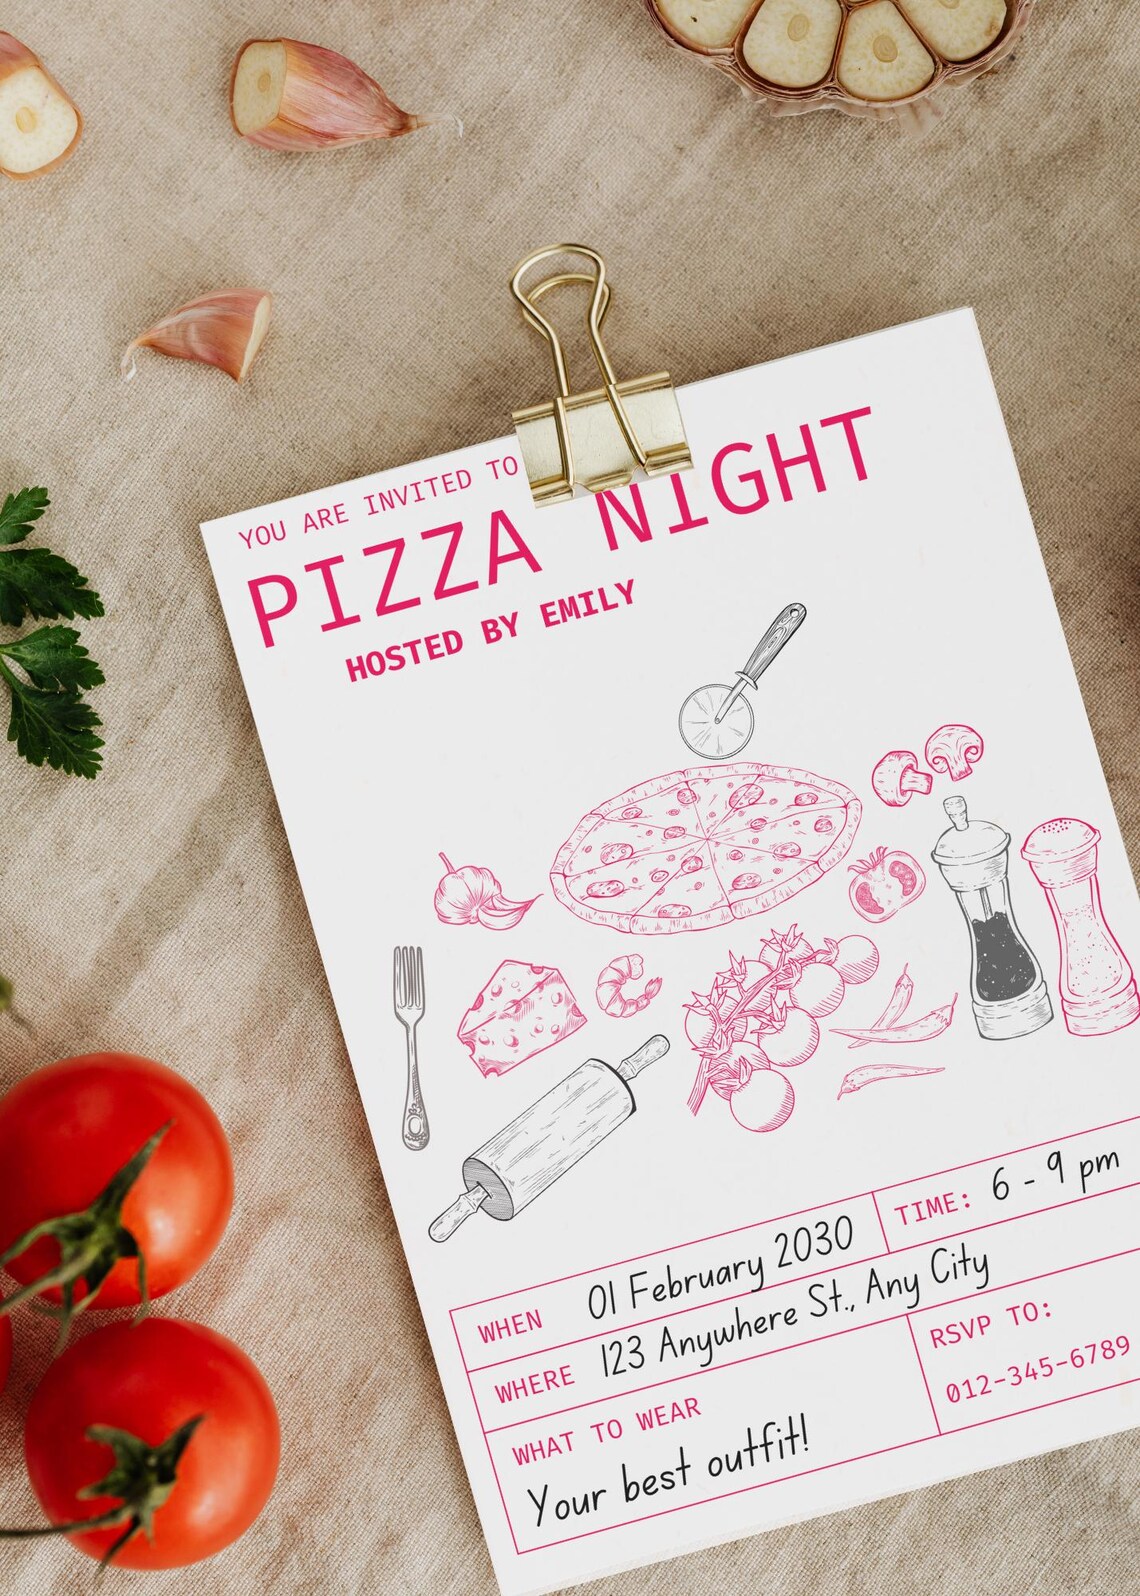 YOU ARE INVITED TO
PIZZA NIGHT
HOSTED BY EMILY
WHEN 01 February 2030 TIME: 6 - 9 pm
WHERE 123 Anywhere St., Any City
WHAT TO WEAR
Your best outfit!
RSVP TO:
012-345-6789